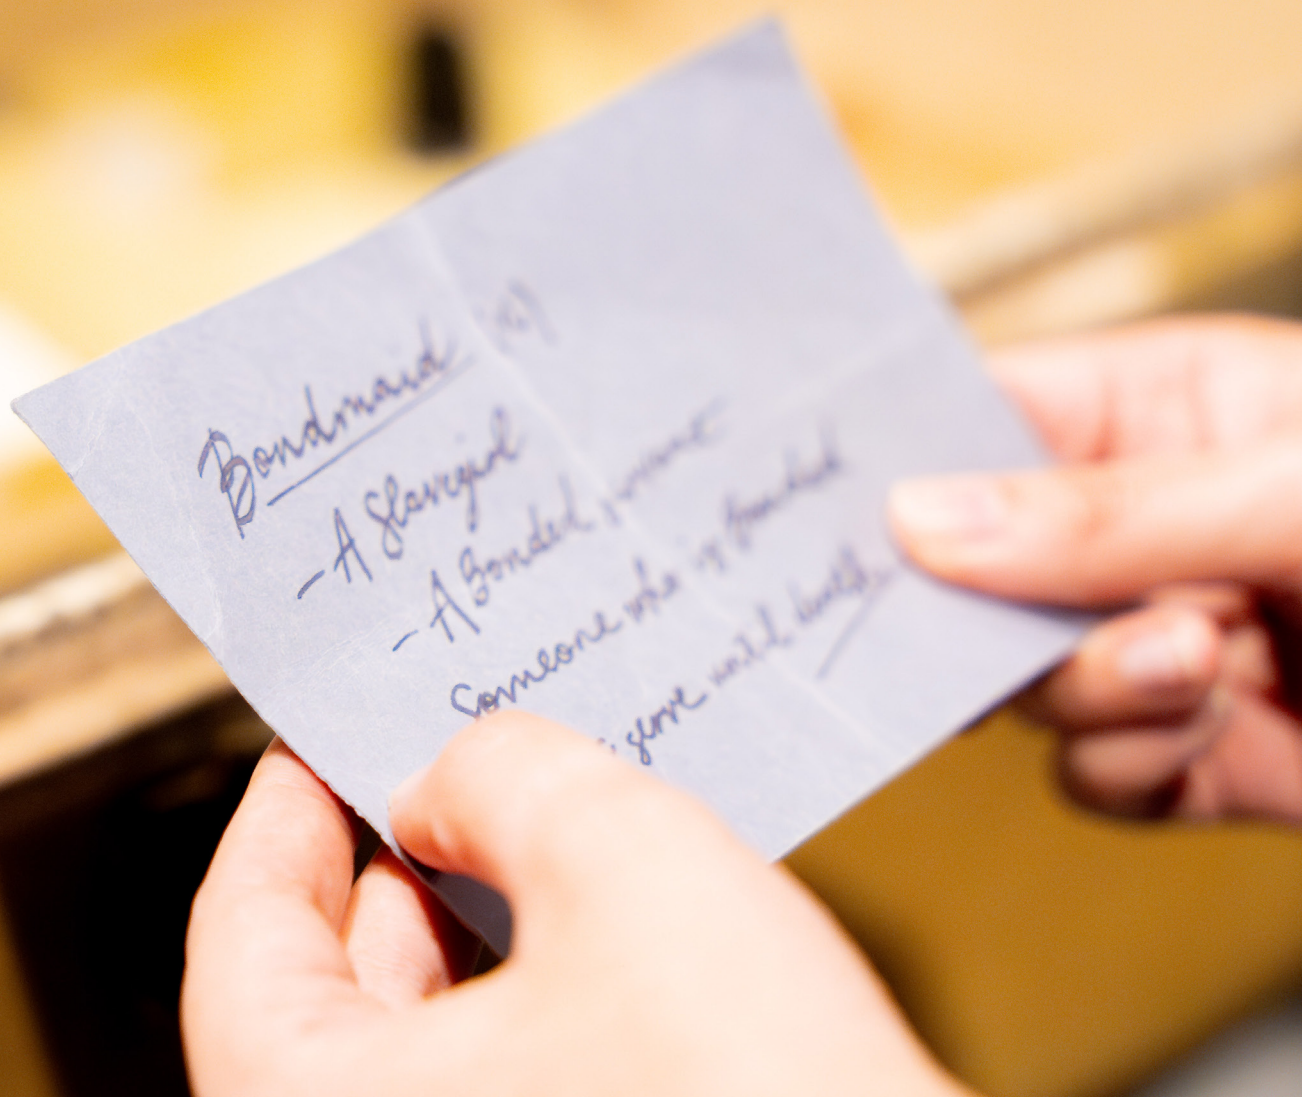 Bondmaid
- A Slavegirl
- A Bonded servant
Someone who is bonded
serve until death